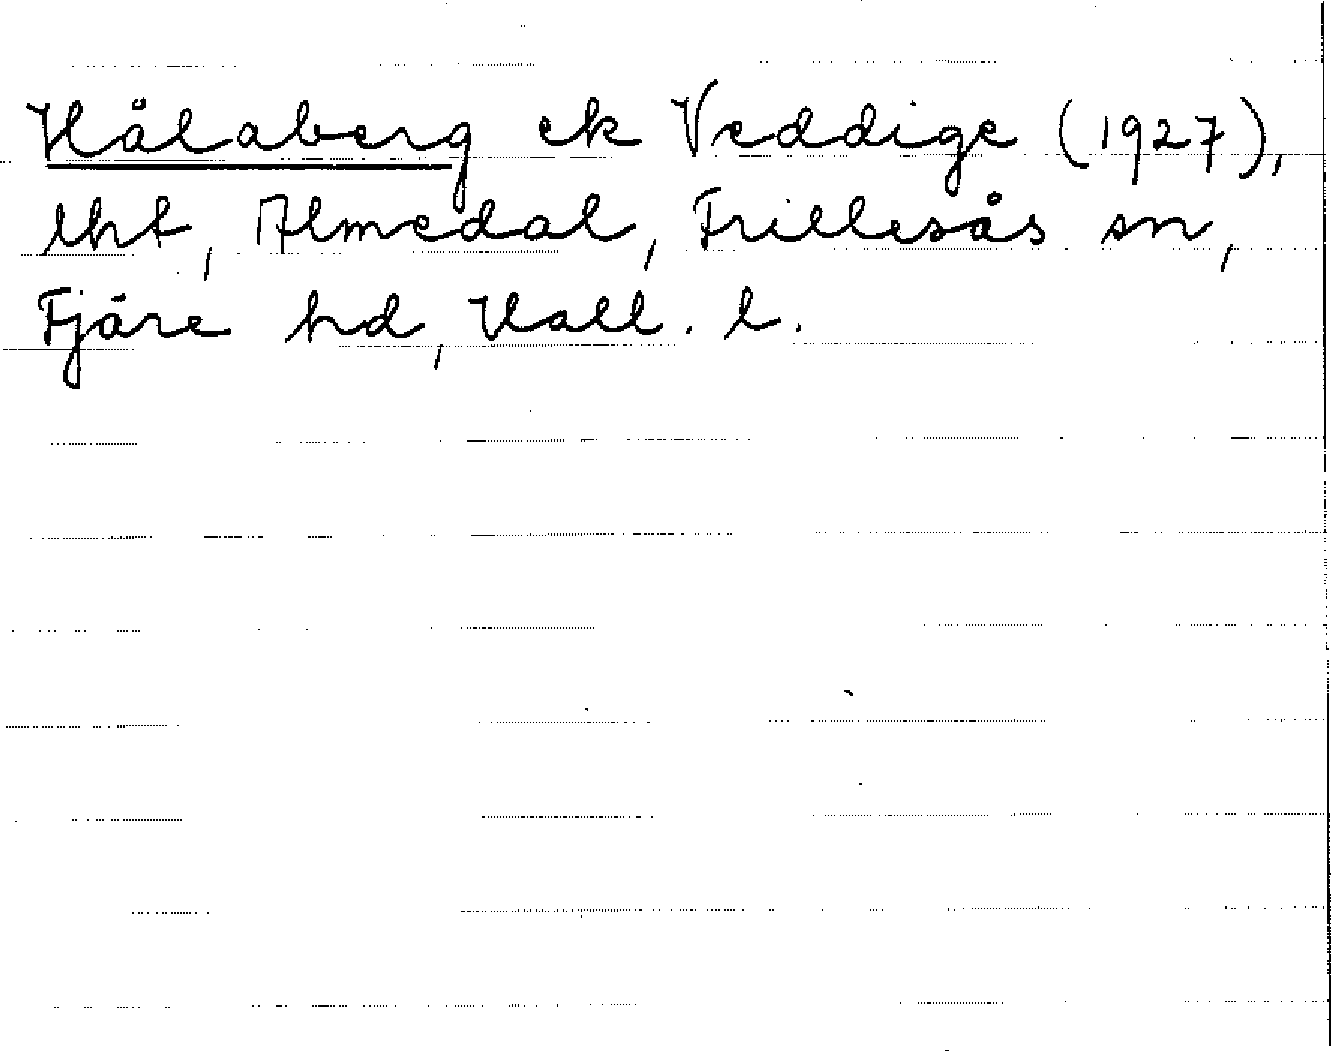 Hålaberg ek Veddige (1927),
lht, Almedal, Frillesås sn,
Fjäre hd, Hall. l.